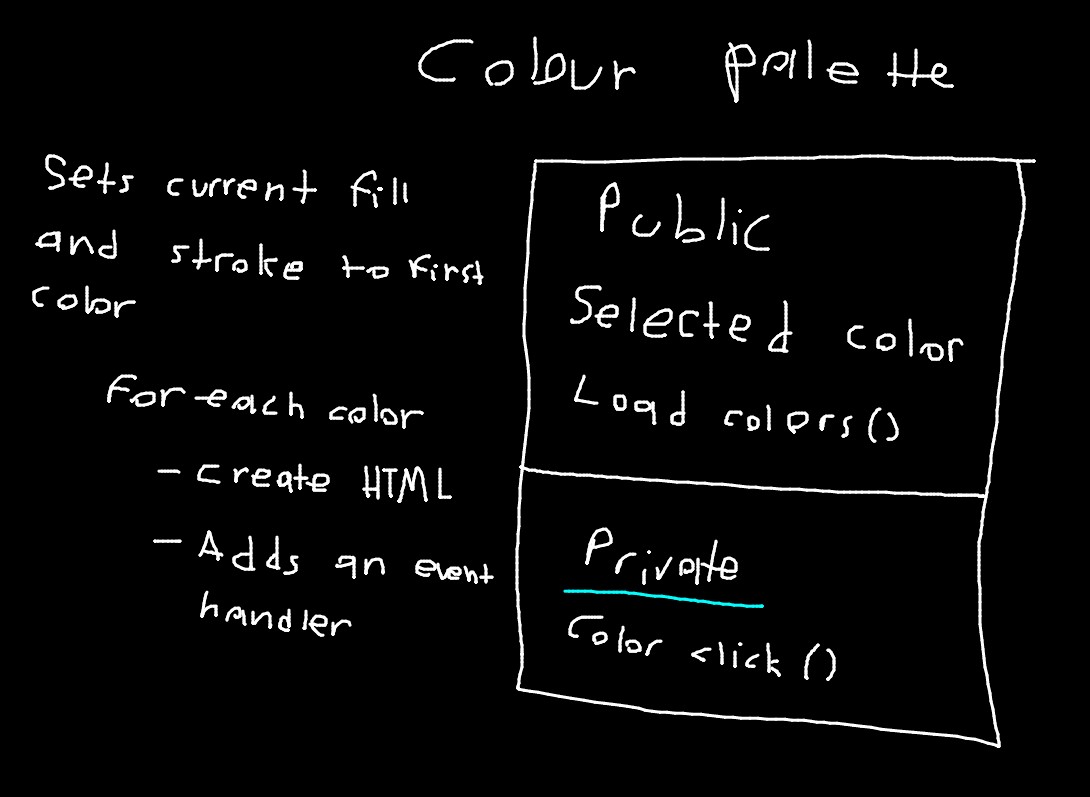 Colour palette
Sets current fill
and stroke to first
color
For each color
- create HTML
- Adds an event
handler
Public
Selected color
Load colors()
Private
Color click()